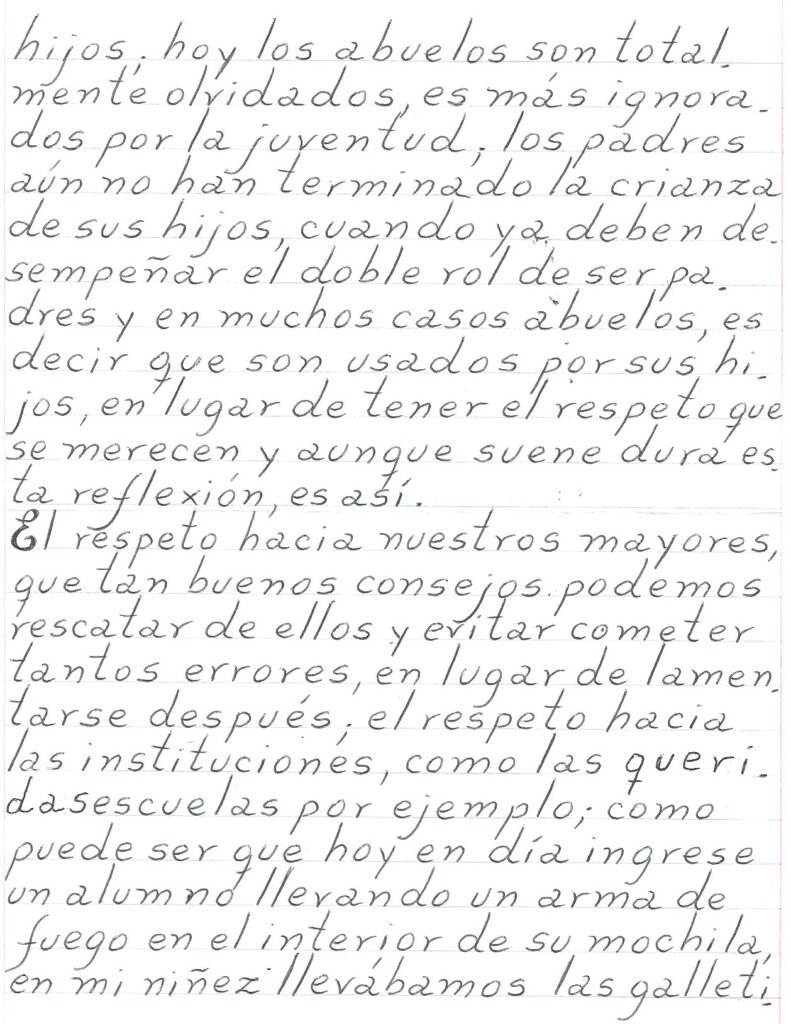 hijos; hoy los abuelos son total-
mente olvidados, es más ignora-
dos por la juventud; los padres
aún no han terminado la crianza
de sus hijos, cuando ya deben de-
sempeñar el doble rol de ser pa-
dres y en muchos casos abuelos, es
decir que son usados por sus hi-
jos, en lugar de tener el respeto que
se merecen y aunque suene dura es-
ta reflexión, es así.
El respeto hacia nuestros mayores,
que tan buenos consejos podemos
rescatar de ellos y evitar cometer
tantos errores, en lugar de lamen-
tarse después; el respeto hacia
las instituciones, como las queri-
dasescuelas por ejemplo; como
puede ser que hoy en día ingrese
un alumno llevando un arma de
fuego en el interior de su mochila,
en mi niñez llevábamos las galleti-